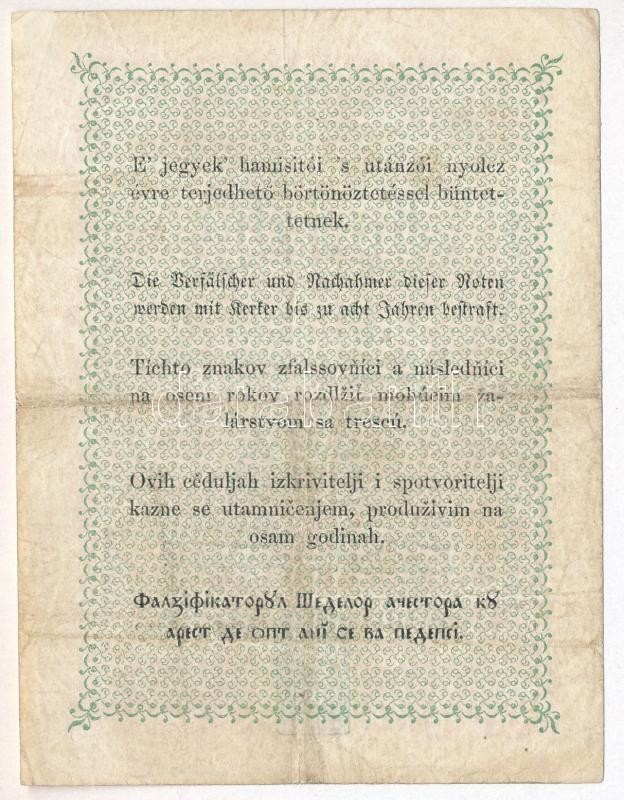 E' jegyek' hamisitói 's utánzói nyolcz
évre terjedhető börtönöztetéssel büntet-
tetnek.
Die Verfälscher und Nachahmer dieser Noten
werden mit Kerker bis zu acht Jahren bestraft.
Tíchto znakov zfalssovňíci a následňíci
na osem rokov rozdlžiť mohúcim ža-
lárstvom sa trescú.
Ovih cèduljah izkrivitelji i spotvoritelji
kazne se utamničenjem, produživim na
osam godinah.
Фалꙁіфікаторꙋл Шеделор ачестора кꙋ
арест де ѡпт анї се ва педепсі.
databanth